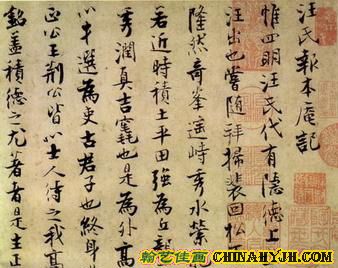 汪氏報本庵記
惟四明汪氏代有隱德上
汪出也嘗隨拜掃裴回松
隆然奇峯遥峙秀水縈
若近時積土平田強為丘壟
秀潤真吉竁也是為外高
以才選為吏古君子也終身
正公王荊公皆以士人待之我高
銘盖積德之尤著者是生正
翰艺佳画
CHINAHYJH.COM